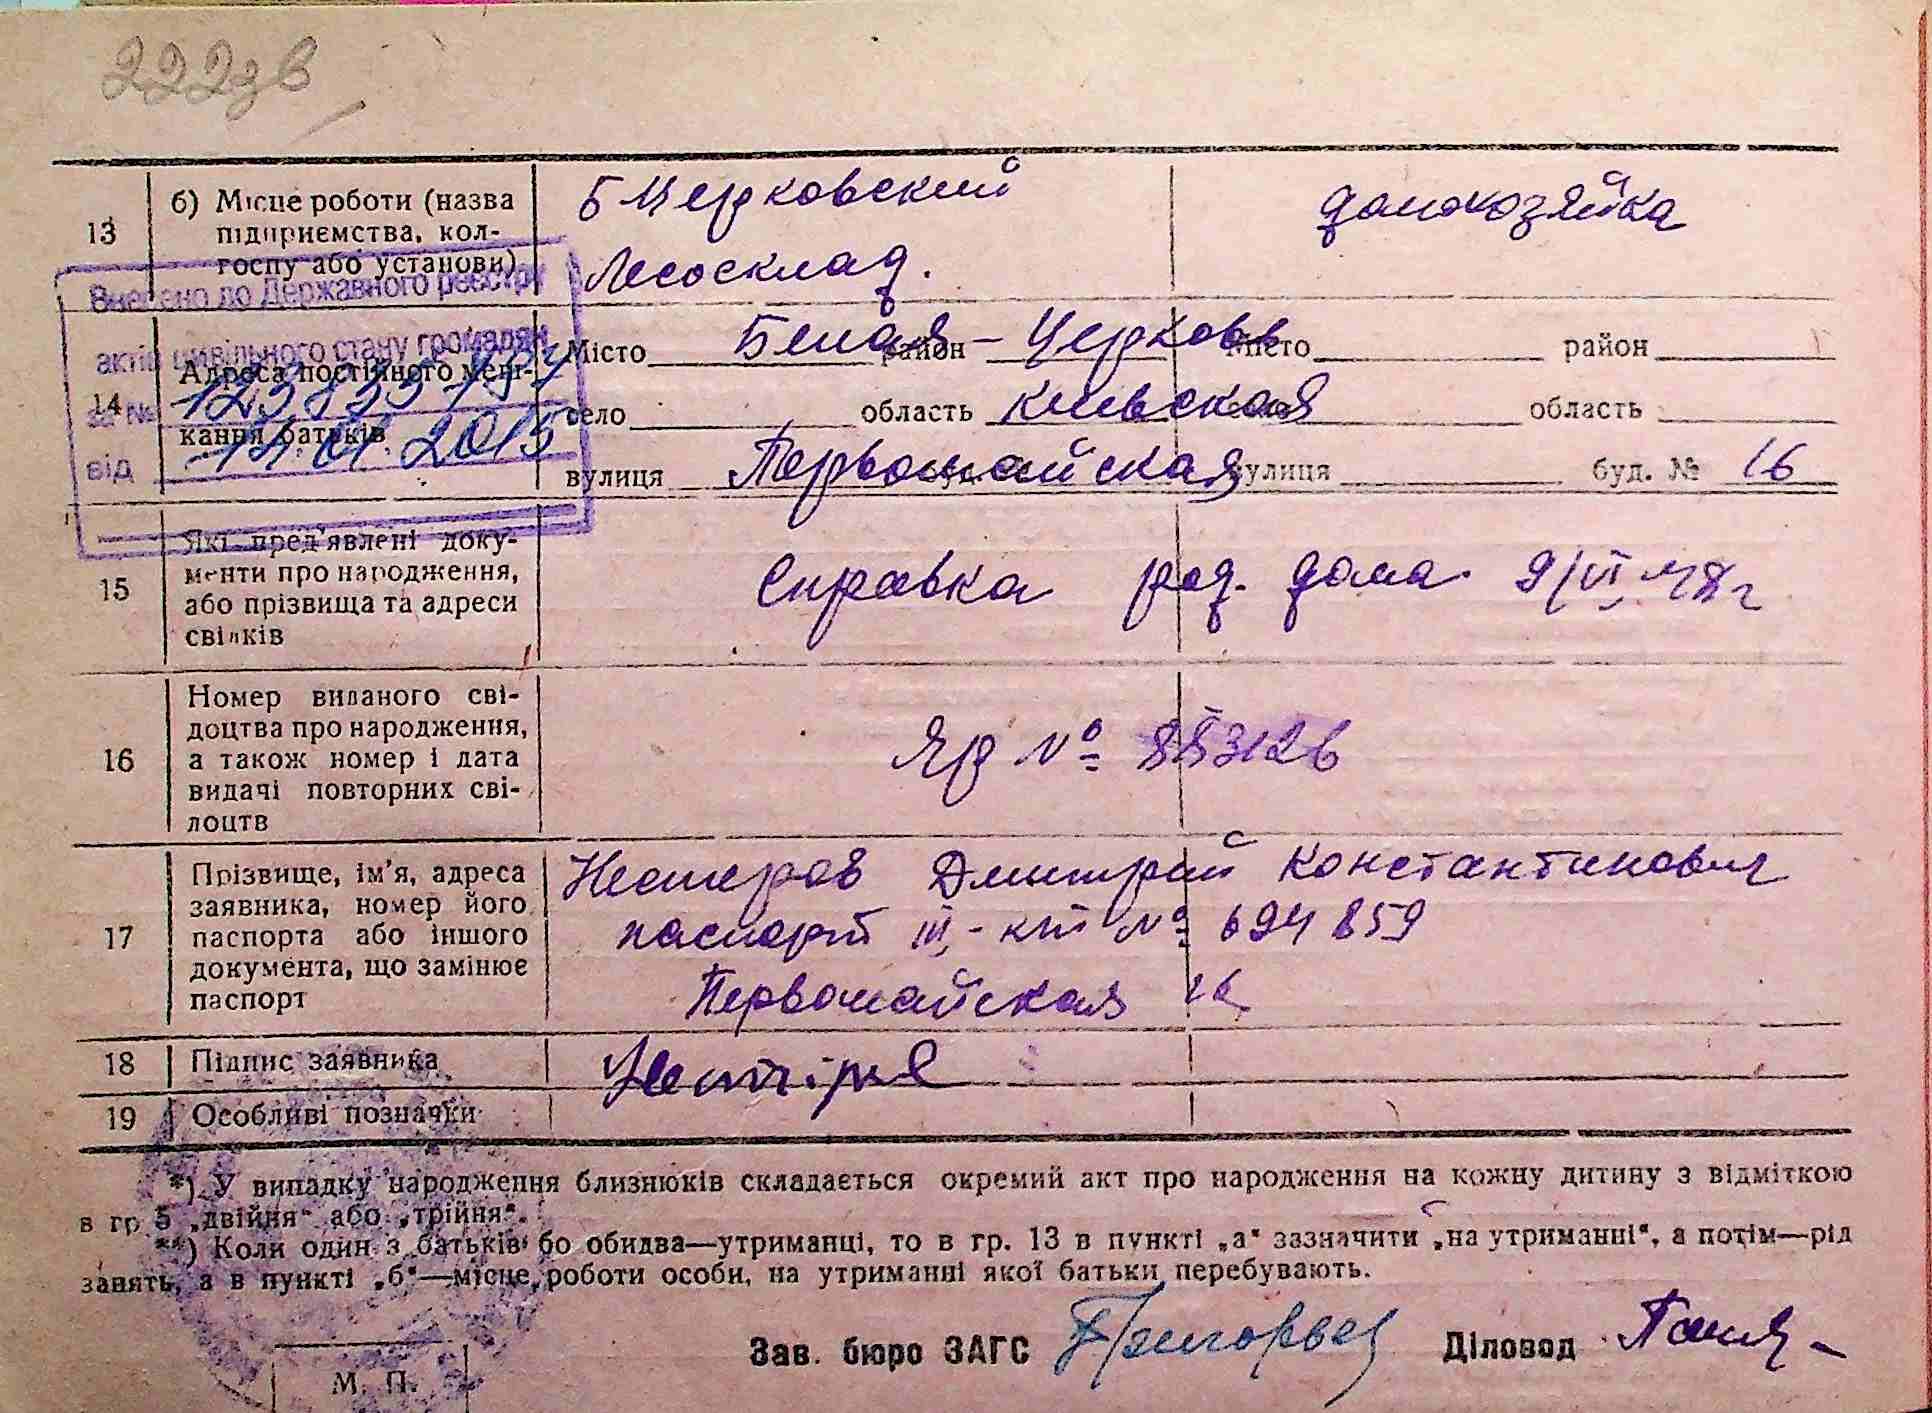 222
13 б) Місце роботи (назва підприємства, колгоспу або установи)
Б Церковский
Лесосклад.
домохозяйка
Внесено до Державного реєстру
актів цивільного стану громадян
за №
від 14.01.2015
14 Адреса постійного мешкання батьків
Місто Белая район - Церковь Місто район
село область киевская область
вулиця Первомайская вулиця буд. № 16
15 Які пред'явлені документи про народження, або прізвища та адреси свідків
Справка род. дома 9/VI 48 г
16 Номер виданого свідоцтва про народження, а також номер і дата видачі повторних свідоцтв
ЯР №
17 Прізвище, ім'я, адреса заявника, номер його паспорта або іншого документа, що замінює паспорт
Нестеров Дмитрий Константинович
паспорт III - № 694859
Первомайская 16
18 Підпис заявника
19 Особливі позначки
*) У випадку народження близнюків складається окремий акт про народження на кожну дитину з відміткою
в гр 5 „двійня“ або „трійня“.
**) Коли один з батьків бо обидва—утриманці, то в гр. 13 в пункті „а“ зазначити „на утриманні“, а потім—рід
занять, а в пункті „б“—місце роботи особи, на утриманні якої батьки перебувають.
Зав. бюро ЗАГС Діловод
М. П.